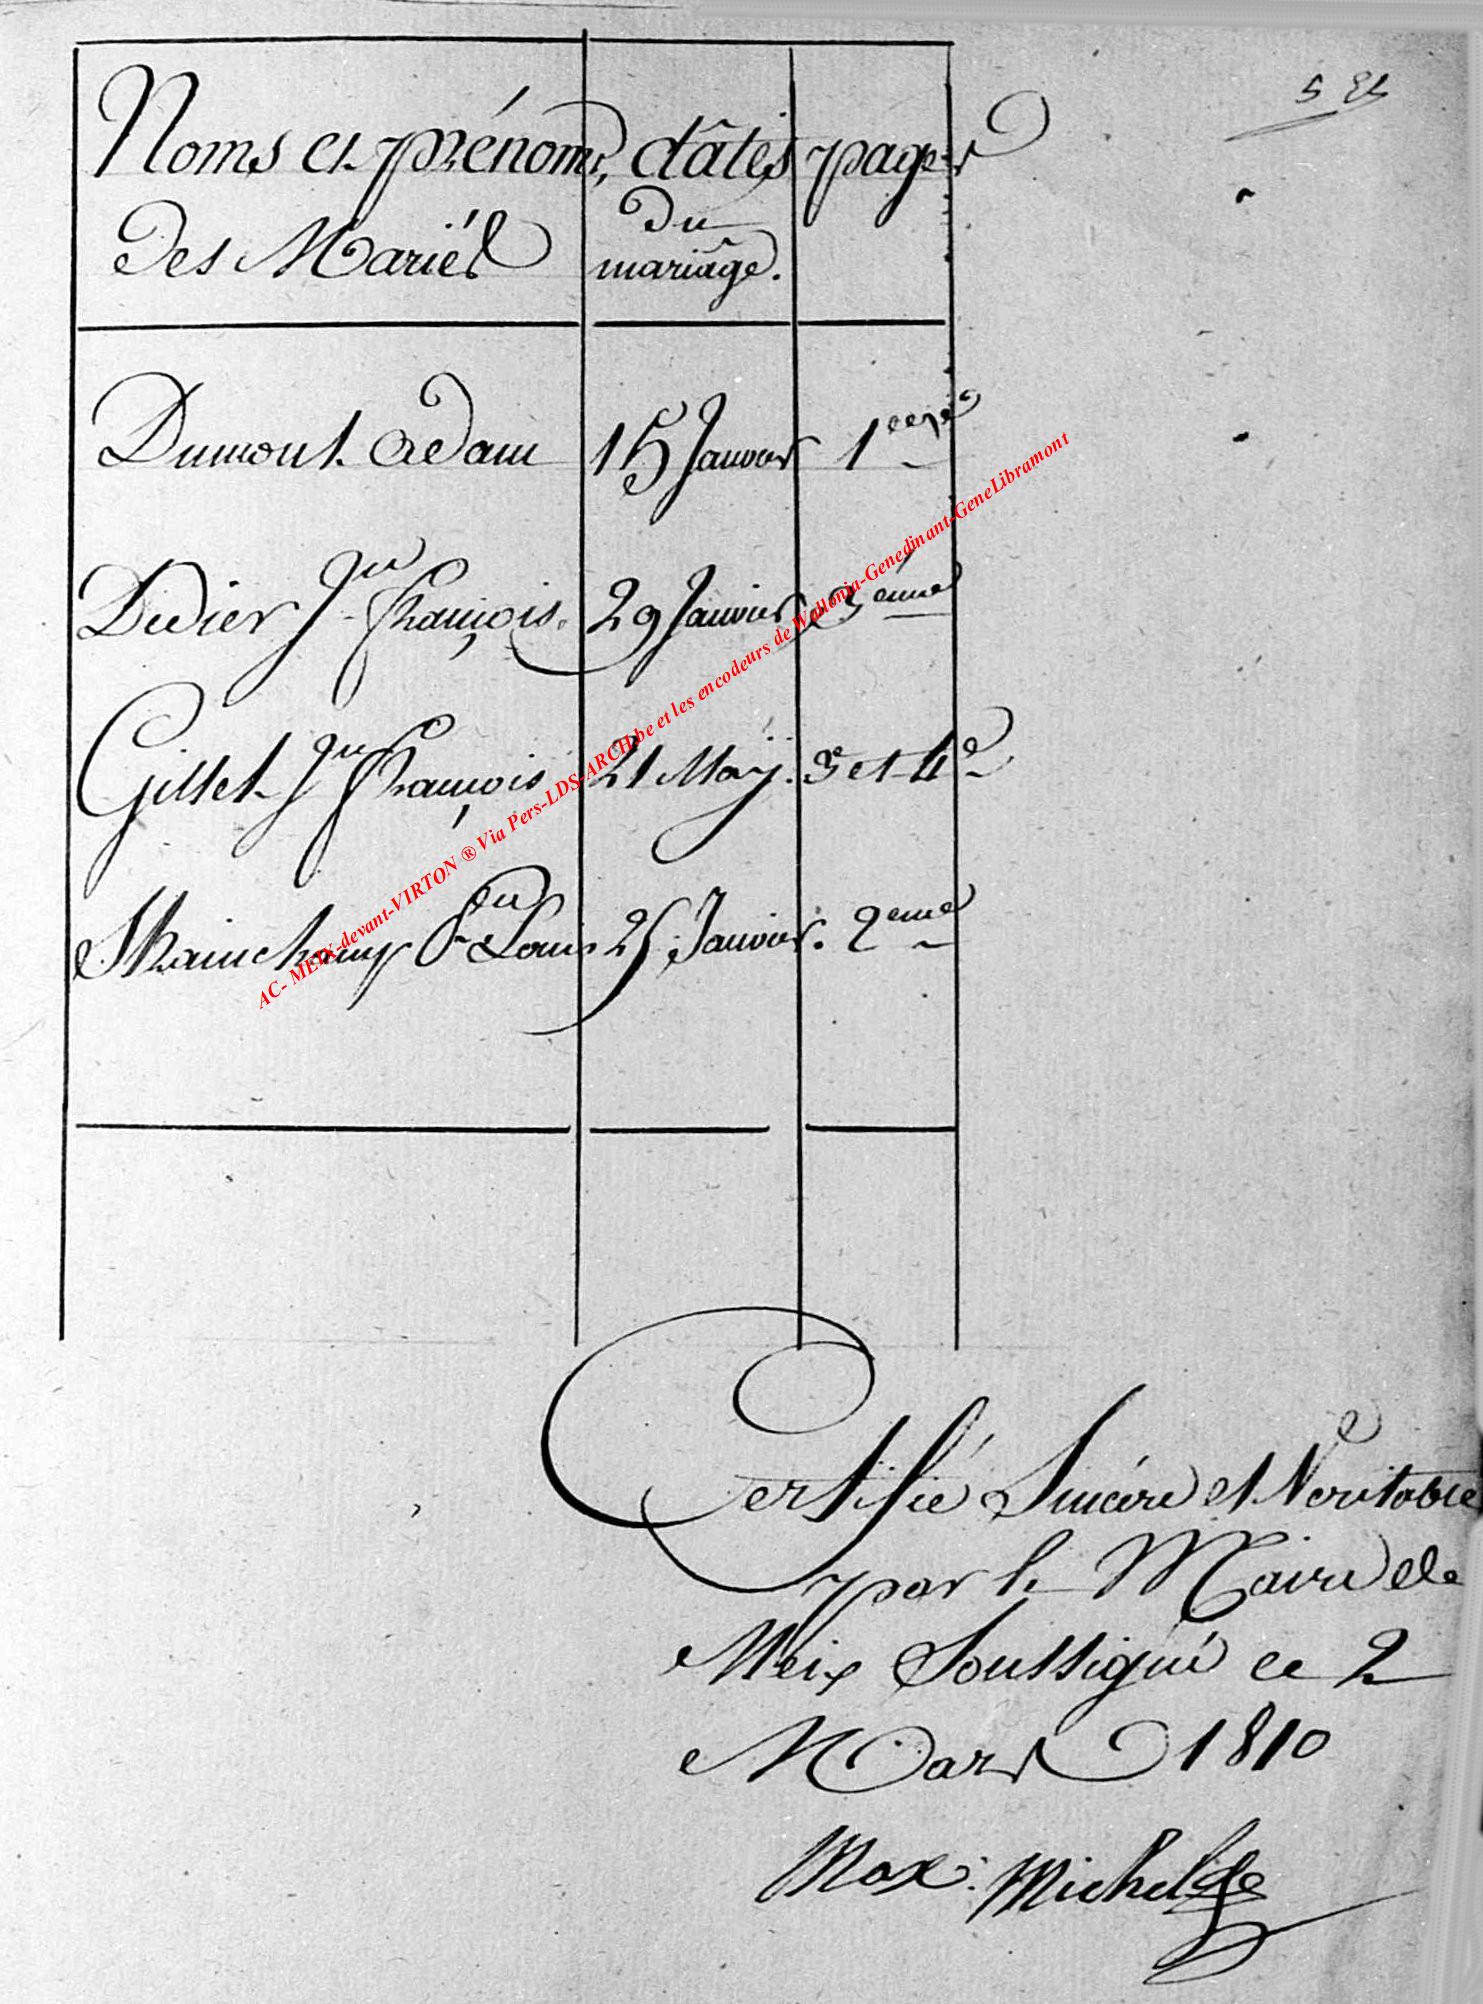 Noms et prénoms, dâtes pages
des Mariés du
mariâge.
Dumont Adam 15 Janvier 1ere
Didier Jn François. 29 Janvier 3éme
Gillet Jn François 21 Maÿ. 3e et 4e
Jn Louis 25 Janvier. 2eme
AC- MEIX-devant-VIRTON ® Via Pers-LDS-ARCH.be et les encodeurs de Wallonia-Genedinant-GeneLibramont
Certifié Sincére et Veritable
par le Maire de
Meix Soussigné ce 2
Mars 1810
Max: Michel